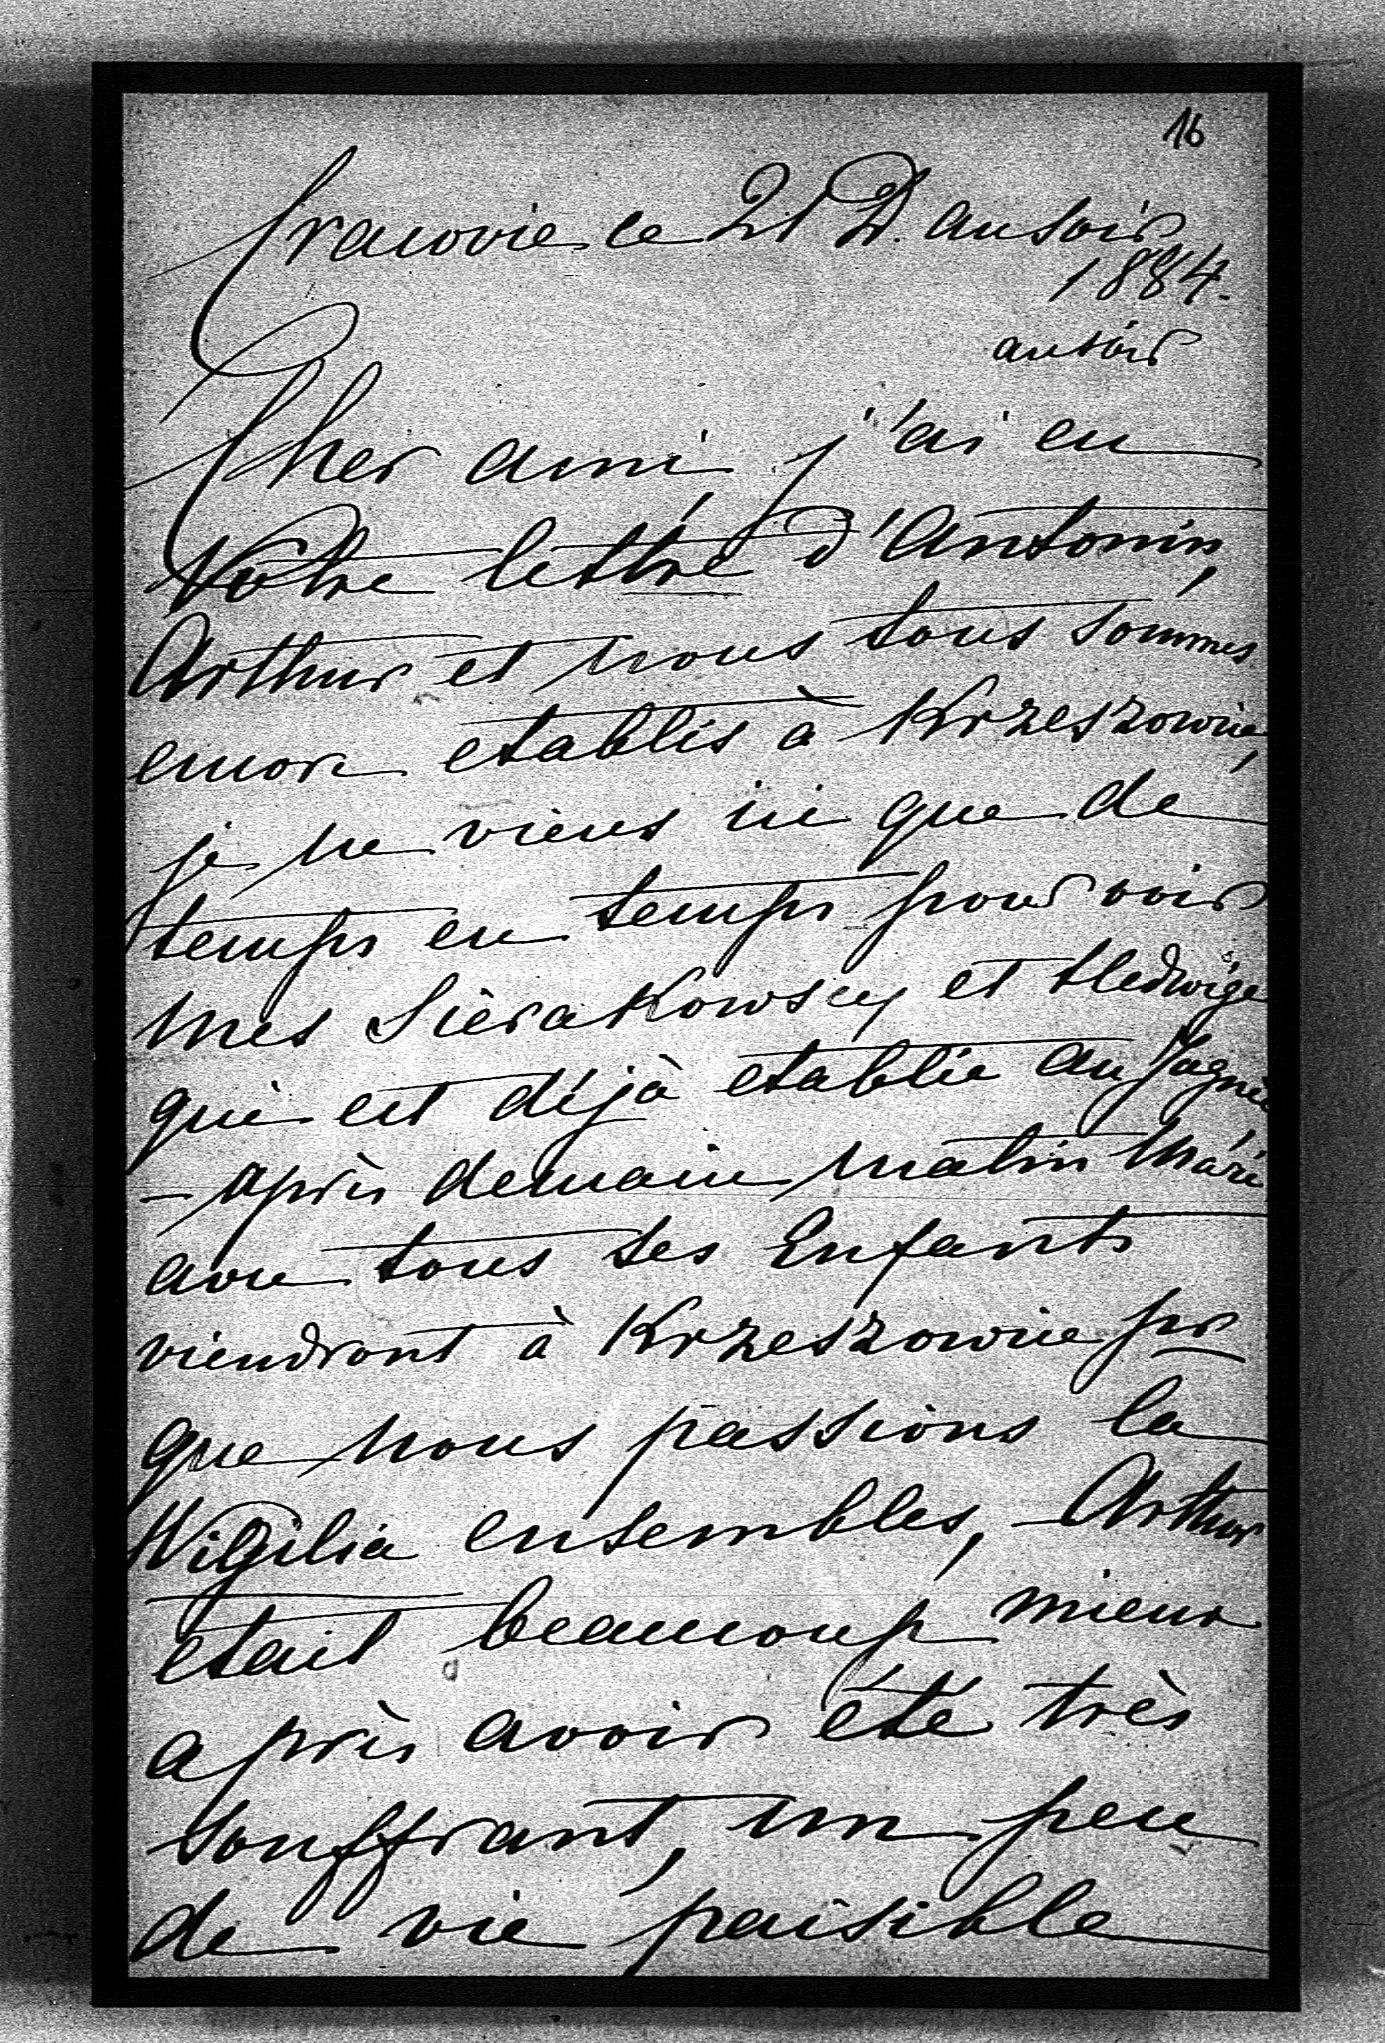 16
Cracovie le 21 D. au soir
1884.
au soir
Cher ami, j'ai eu
Votre lettre d'Antonin,
Arthur et nous tous sommes
encore etablis à Krzeszowice,
je ne viens ici que de
temps en temps pour voir
mes Sierakowscy et Hedwige
qui est déjà etablie au
– après demain matin Marie
avec tous ses Enfants
viendront à Krzeszowice pr
que nous passions la
Wigilia ensembles, – Arthur
etait beaucoup mieux
après avoir été très
souffrant, un peu
de vie paisible